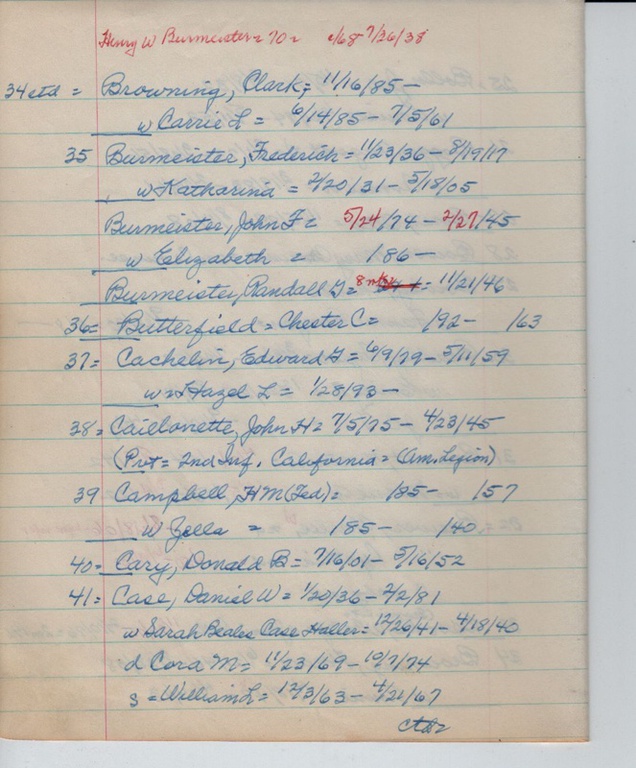 Henry W Burmeister = 70 = 6/68 7/26/38
34 ctd = Browning, Clark, = 11/16/85 -
w Carrie L = 6/14/85 - 7/5/61
35 Burmeister, Frederick = 11/23/36 - 8/19/17
w Katharina = 2/20/31 - 5/18/05
Burmeister, John F = 5/24/74 - 2/27/45
w Elizabeth = 186-
Burmeister, Randall G = 8 = 11/21/46
36 = Butterfield = Chester C = /92- /63
37 = Cachelin, Edward G = 6/9/79 - 5/11/59
w = Hazel L = 1/28/93 -
38 = Caillonette, John H = 7/5/75 - 4/23/45
(Pvt = 2nd Inf. California = (Am. Legion)
39 Campbell, H M (Ted) = 185- 157
w Zella = 185- 140 =
40 = Cary, Donald B = 7/16/01 - 5/16/52
41 = Case, Daniel W = 1/20/36 - 2/2/81
w Sarah Beales Case Haller = 12/26/41 - 4/18/40
d Cora M = 11/23/69 - 10/7/74
s = William L = 12/3/63 - 4/21/67
ctd =